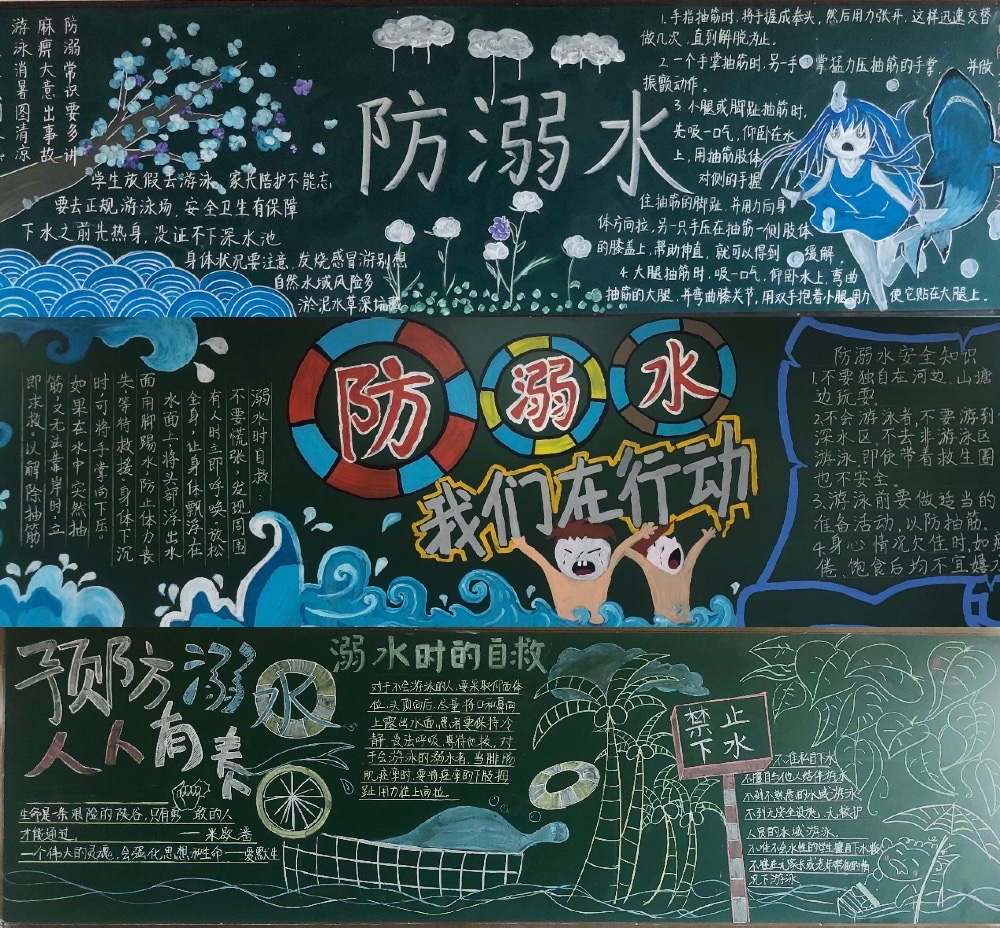 防溺常识要多讲
麻痹大意出事故
游泳消暑图清凉
学生放假去游泳 家长陪护不能忘
要去正规游泳场，安全卫生有保障
下水之前先热身，没证不下深水池
身体状况要注意，发烧感冒游别想
自然水域风险多
淤泥水草深坑藏
防溺水
1.手指抽筋时，将手握成拳头，然后用力张开，这样迅速交替
做几次，直到解脱为止。
2.一个手掌抽筋时，另一手掌猛力压抽筋的手掌，并做
振颤动作。
3.小腿或脚趾抽筋时，
先吸一口气，仰卧在水
上，用抽筋肢体
对侧的手握
住抽筋的脚趾，并用力向身
体方向拉，另一只手压在抽筋一侧肢体
的膝盖上，帮助伸直，就可以得到缓解
4.大腿抽筋时，吸一口气，仰卧水上，弯曲
抽筋的大腿，并弯曲膝关节，用双手抱着小腿用力 使它贴在大腿上。
溺水时自救：
不要慌张，发现周围
有人时立即呼唤，放松
全身，让身体飘浮在
水面上，将头部浮出水
面，用脚踢水，防止体力丧
失，等待救援，身体下沉
时，可将手掌向下压。
如果在水中突然抽
筋，又无法靠岸时，立
即求救。以解除抽筋，
防溺水
我们在行动
防溺水安全知识
1.不要独自在河边、山塘
边玩耍
2.不会游泳者，不要游到
深水区，不去非游泳区
游泳，即使带着救生圈
也不安全。
3.游泳前要做适当的
准备活动，以防抽筋。
4.身心情况欠佳时，如疲
倦、饱食后均不宜嬉
预防溺水
人人有责
生命是一条艰险的峡谷，只有勇敢的人
才能通过 ——米歇潘
一个伟大的灵魂，会强化思想和生命——爱默生
溺水时的自救
对于不会游泳的人，要采取仰面体
位，头顶向后，尽量将口和鼻向
上露出水面，患者要保持冷
静，设法呼吸，等待他救。对
于会游泳的溺水者，当腓肠
肌痉挛时，要将痉挛的下肢拇
趾用力往上向拉。
禁止
下水
不准私自下水
不擅自与他人结伴游泳
不到不熟悉的水域游泳
不到无安全设施、无救护
人员的水域游泳
不准不会水性的学生擅自下水救
不准在无家长或老师带领的情
况下游泳